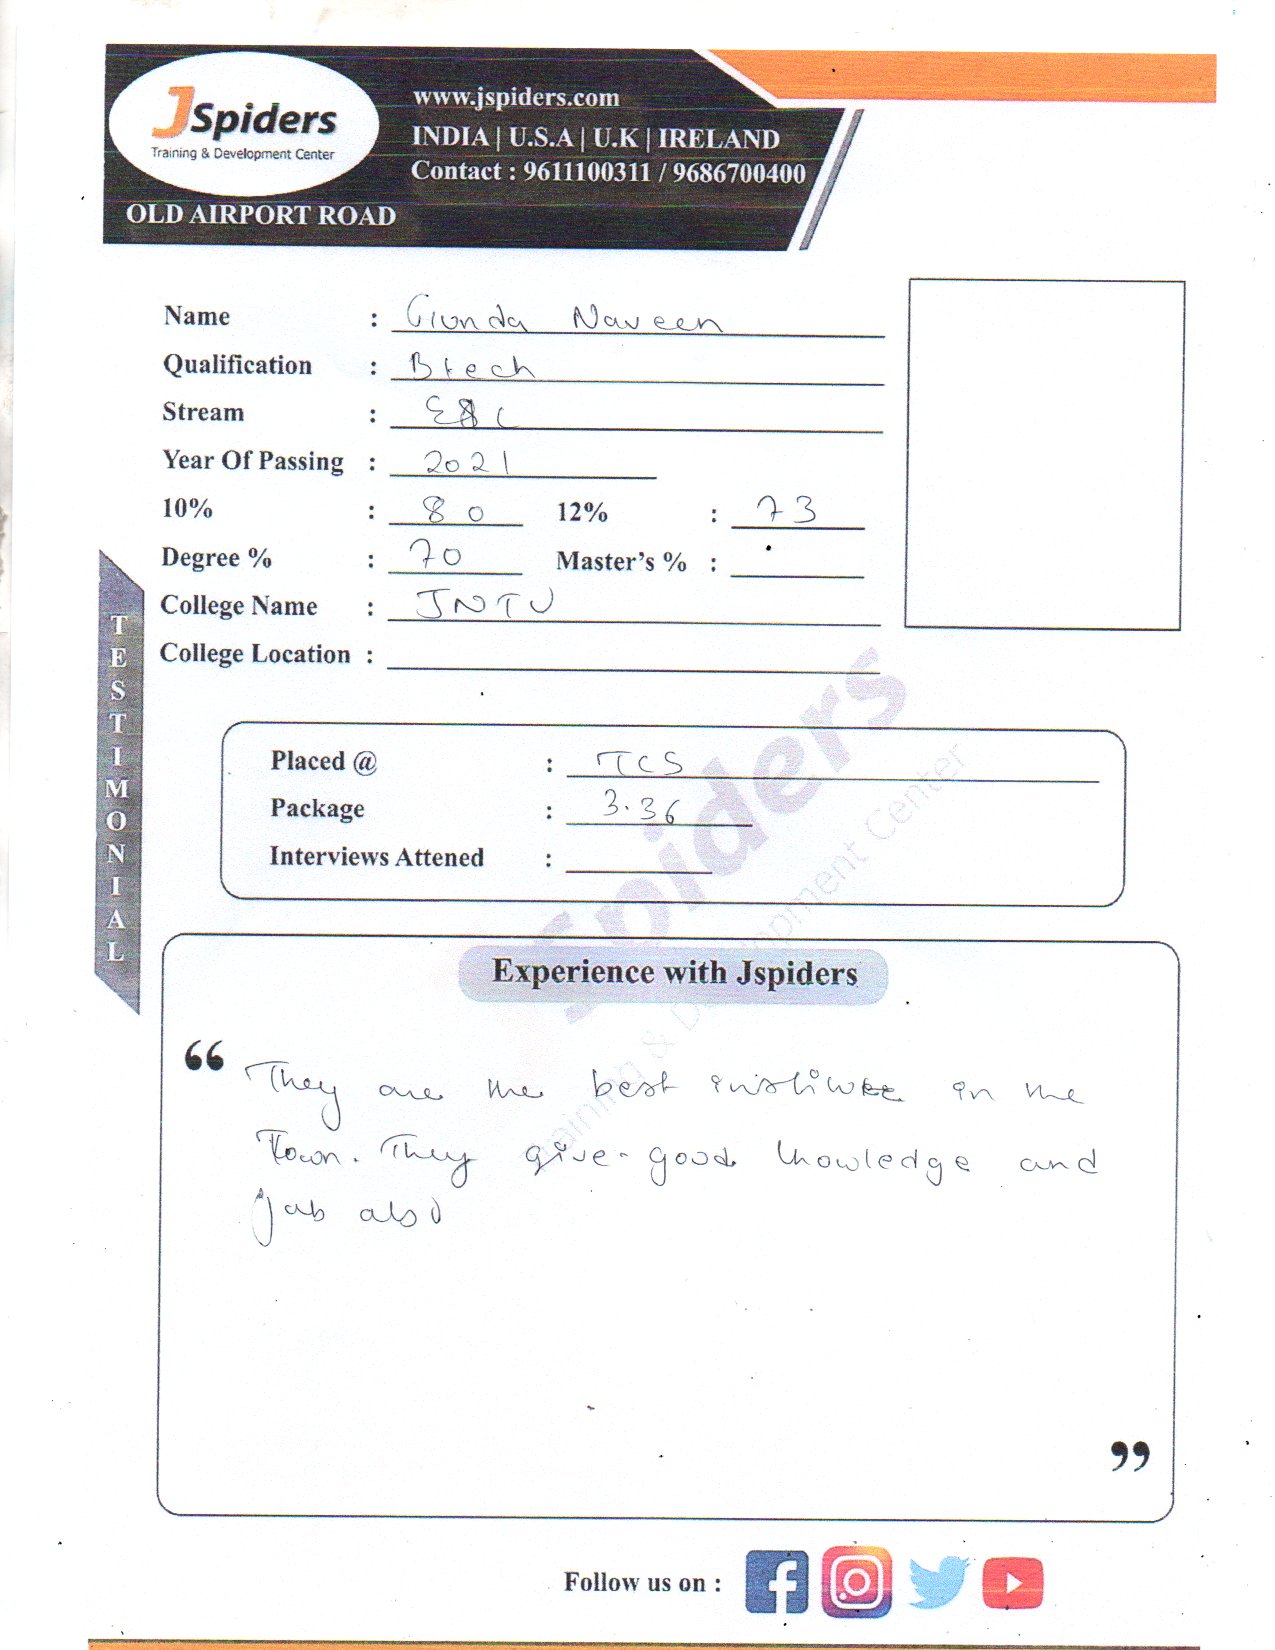 JSpiders
Training & Development Center
OLD AIRPORT ROAD
www.jspiders.com
INDIA | U.S.A | U.K | IRELAND
Contact : 9611100311 / 9686700400
Name : Gunda Naveen
Qualification : Btech
Stream :
Year Of Passing : 2021
10% : 80 12% : 73
Degree % : 70 Master's % :
College Name : JNTU
College Location :
TESTIMONIAL
Placed @ : TCS
Package : 3.36
Interviews Attened :
Spiders
Training & Development Center
Experience with Jspiders
“ They are the best institute in the
Town. They give good knowledge and
job also
”
Follow us on :